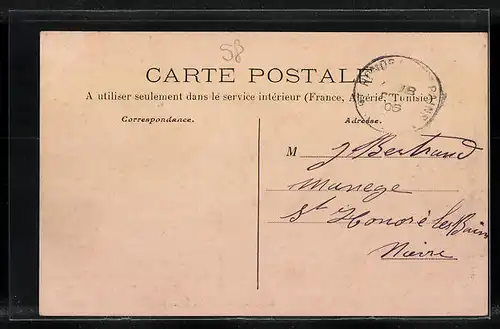 58
CARTE POSTALE
A utiliser seulement dans le service intérieur (France, Algérie, Tunisie)
Correspondance.
Adresse.
M J Bertrand
Manege
St Honoré les Bains
Nièvre